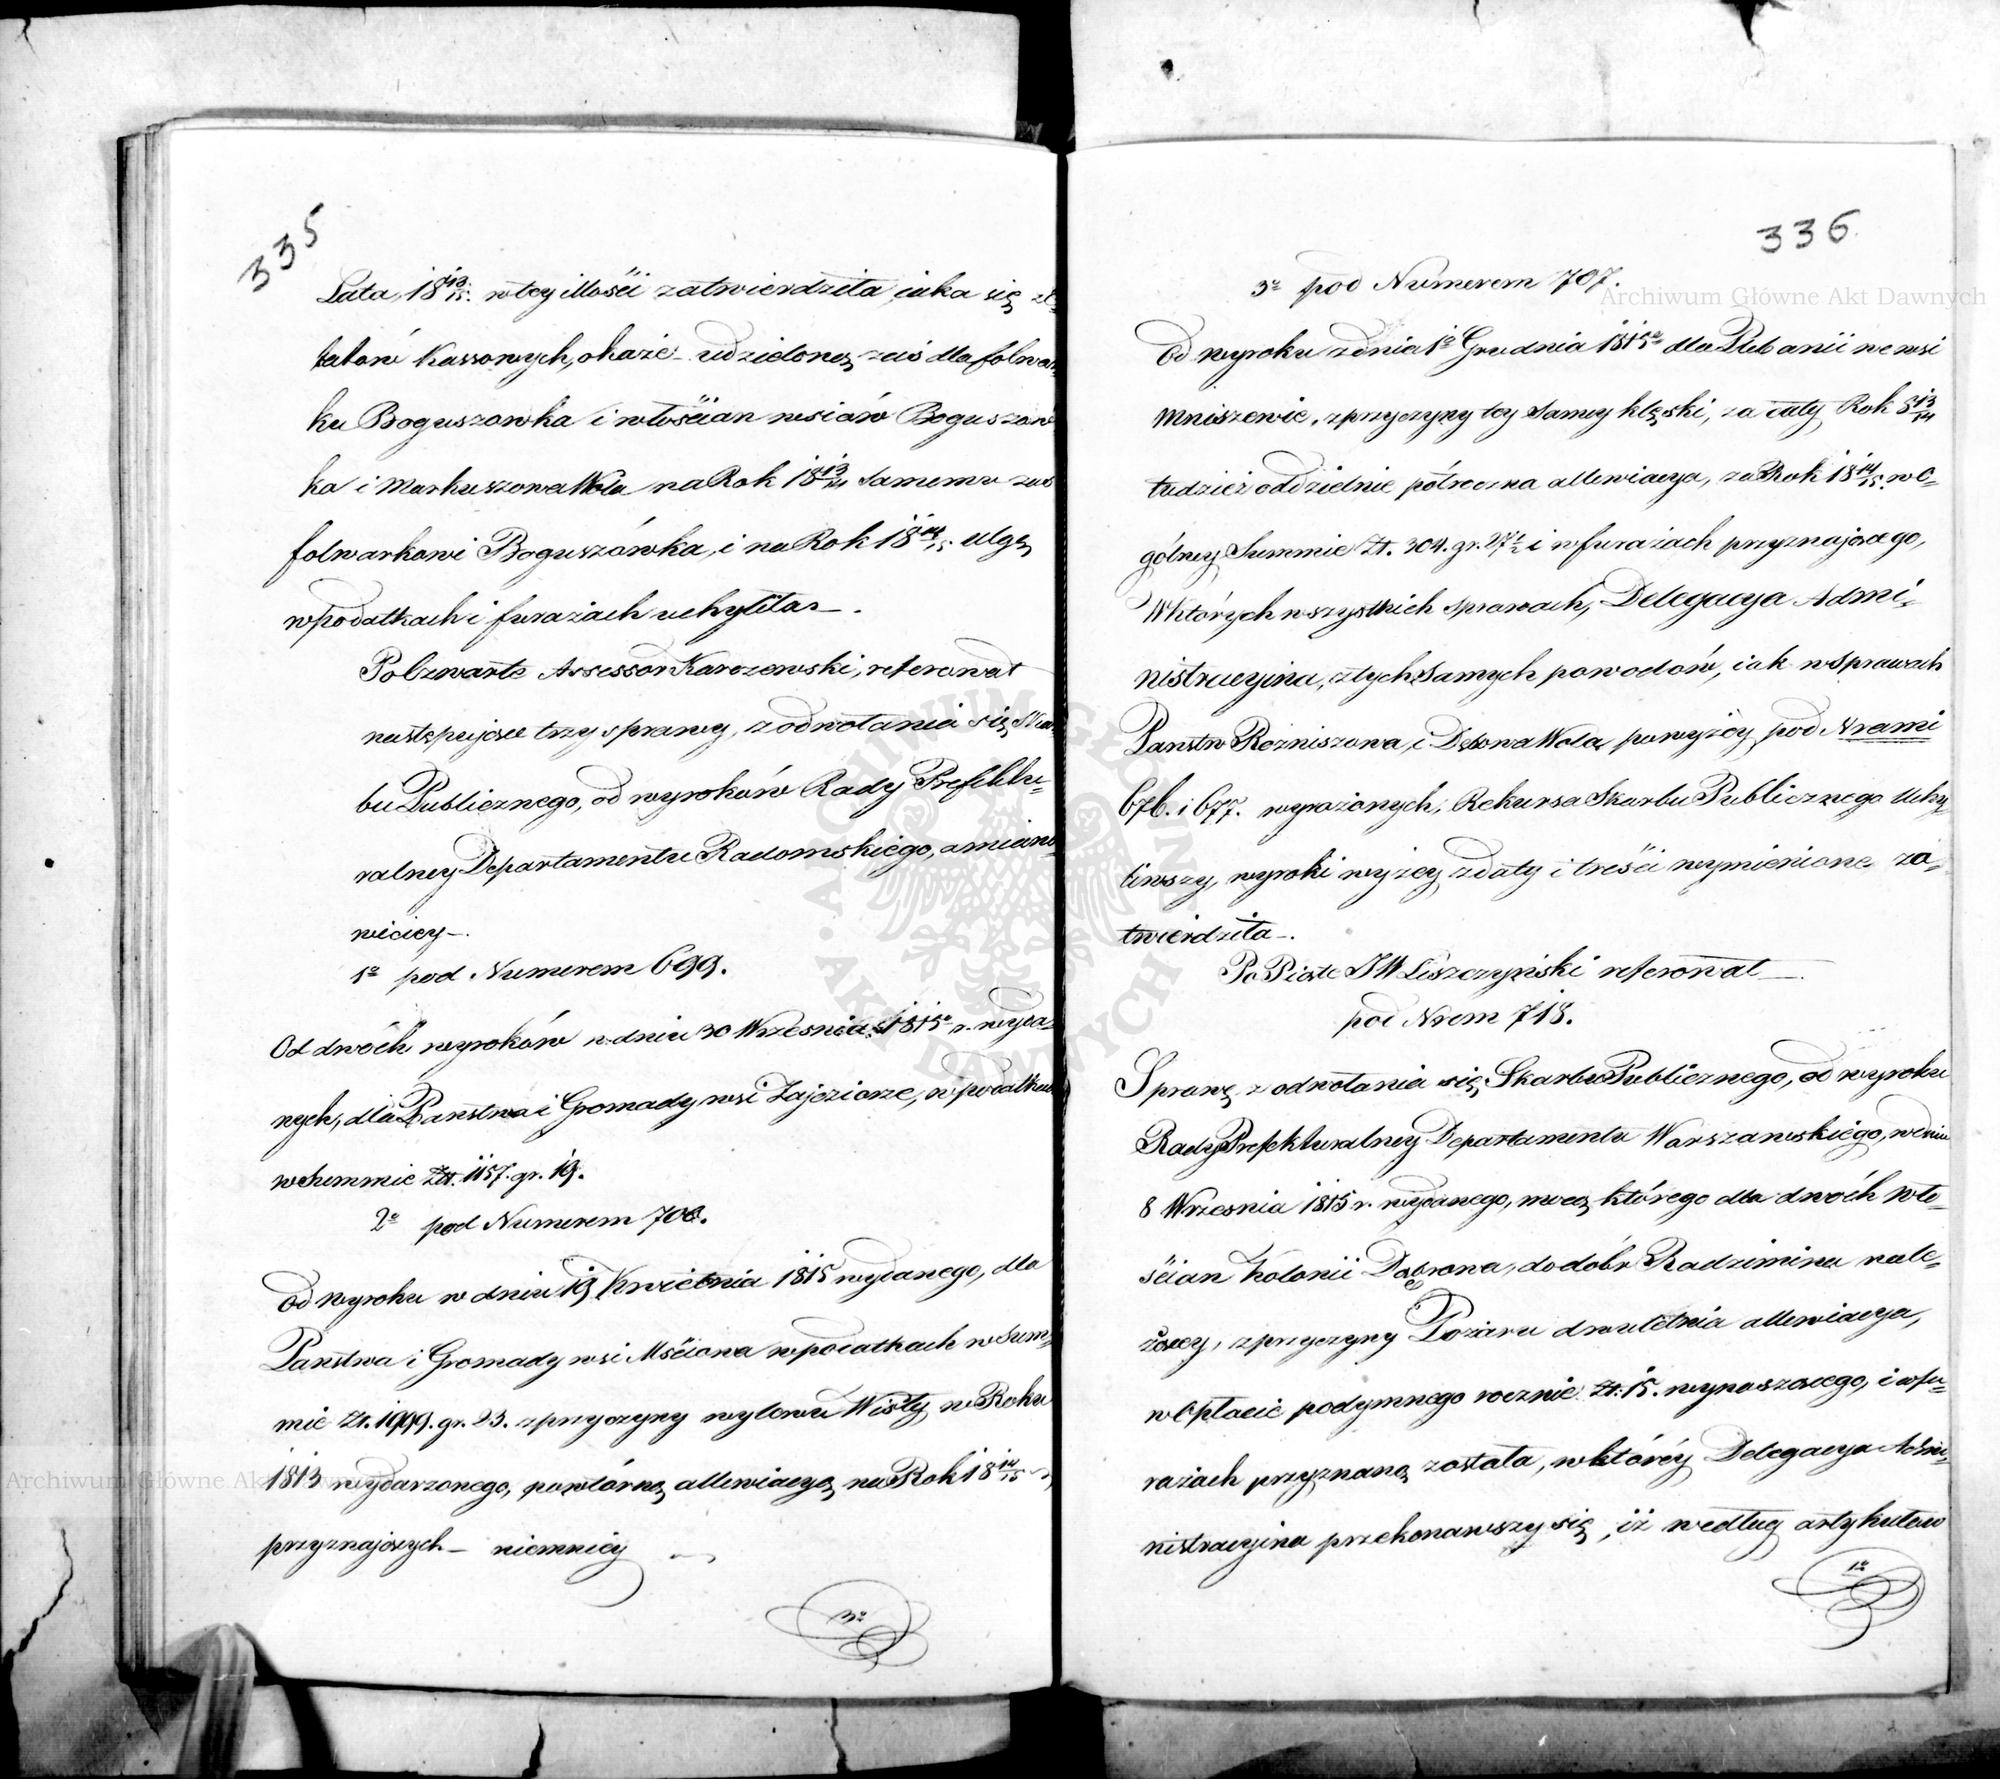 335
Lata 18 13/15. w tey illości zatwierdziła, iaka się z e-
tatów Kassowych, okaże – udzieloną zaś dla folwar-
ku Boguszowka i włościan wsiów Boguszow
ka i Markuszowa Wola na Rok 18 13/14 samemu zaś
folwarkowi Boguszówka, i na Rok 18 14/15. ulgę
w podatkach i furażach uchyliła –.
Po 4zwarte Assessor Karczewski, referował
następuiące trzy sprawy, z odwołania się Skar-
bu Publicznego, od wyroków Rady Prefektu-
ralney Departamentu Radomskiego, a miano-
wiciey –.
1o pod Numerem 699.
Od dwóch wyroków w dniu 30 Września 1815o r. wyda-
nych, dla Państwa i Gromady wsi Zajeziorze, w podatkach
w Summie Złt. 1157. gr. 19.
2o pod Numerem 700.
Od wyroku w dniu 19 Kwietnia 1815 wydanego, dla
Państwa i Gromady wsi Mściowa w podatkach w Sum-
mie Zł. 1999. gr. 23. z przyczyny wylewu Wisły w Roku
1813 wydarzonego, powtórną allewiacyą na Rok 18 14/15
przyznaiących – niemniey
3o
336.
3o pod Numerem 707.
Od wyroku z dnia 1o Grudnia 1815o dla Plebanii we wsi
Mniszewie, z przyczyny tey samey klęski, za cały Rok 8 13/14
tudzież oddzielnie półroczna allewiacya, za Rok 18 14/15. w o-
gólney Summie Zł. 304. gr. 27 1/2 i w furażach przyznaiącego,
W których wszystkich sprawach, Delegacya Admi-
nistracyina, z tych samych powodów, iak w sprawach
Państw Rożniszewa, i Dębowa Wola, powyżey pod Nrami
676. i 677. wyrażonych, Rekursa Skarbu Publicznego uchy-
liwszy, wyroki wyżey z daty i treści wymienione za-
twierdziła –.
Po Piąte JW Liszczyński referował
pod Nrem 718.
Sprawę z odwołania się Skarbu Publicznego, od wyroku
Rady Prefekturalney Departamentu Warszawskiego, w dniu
8 Września 1815 r. wydanego, mocą którego dla dwóch wło-
ścian Kolonii Dąbrowa, do dóbr Radzimina nale-
żącey, z przyczyny Pożaru dwuletnia allewiacya,
w Opłacie podymnego rocznie Zł: 15. wynoszącego, i w fu-
rażach przyznaną została, w którey Delegacya Admi-
nistracyina przekonawszy się, iż według artykułow
1o
Archiwum Główne Akt Dawnych
Archiwum Główne Akt Dawnych
ARCHIWUM GŁÓWNE AKT DAWNYCH